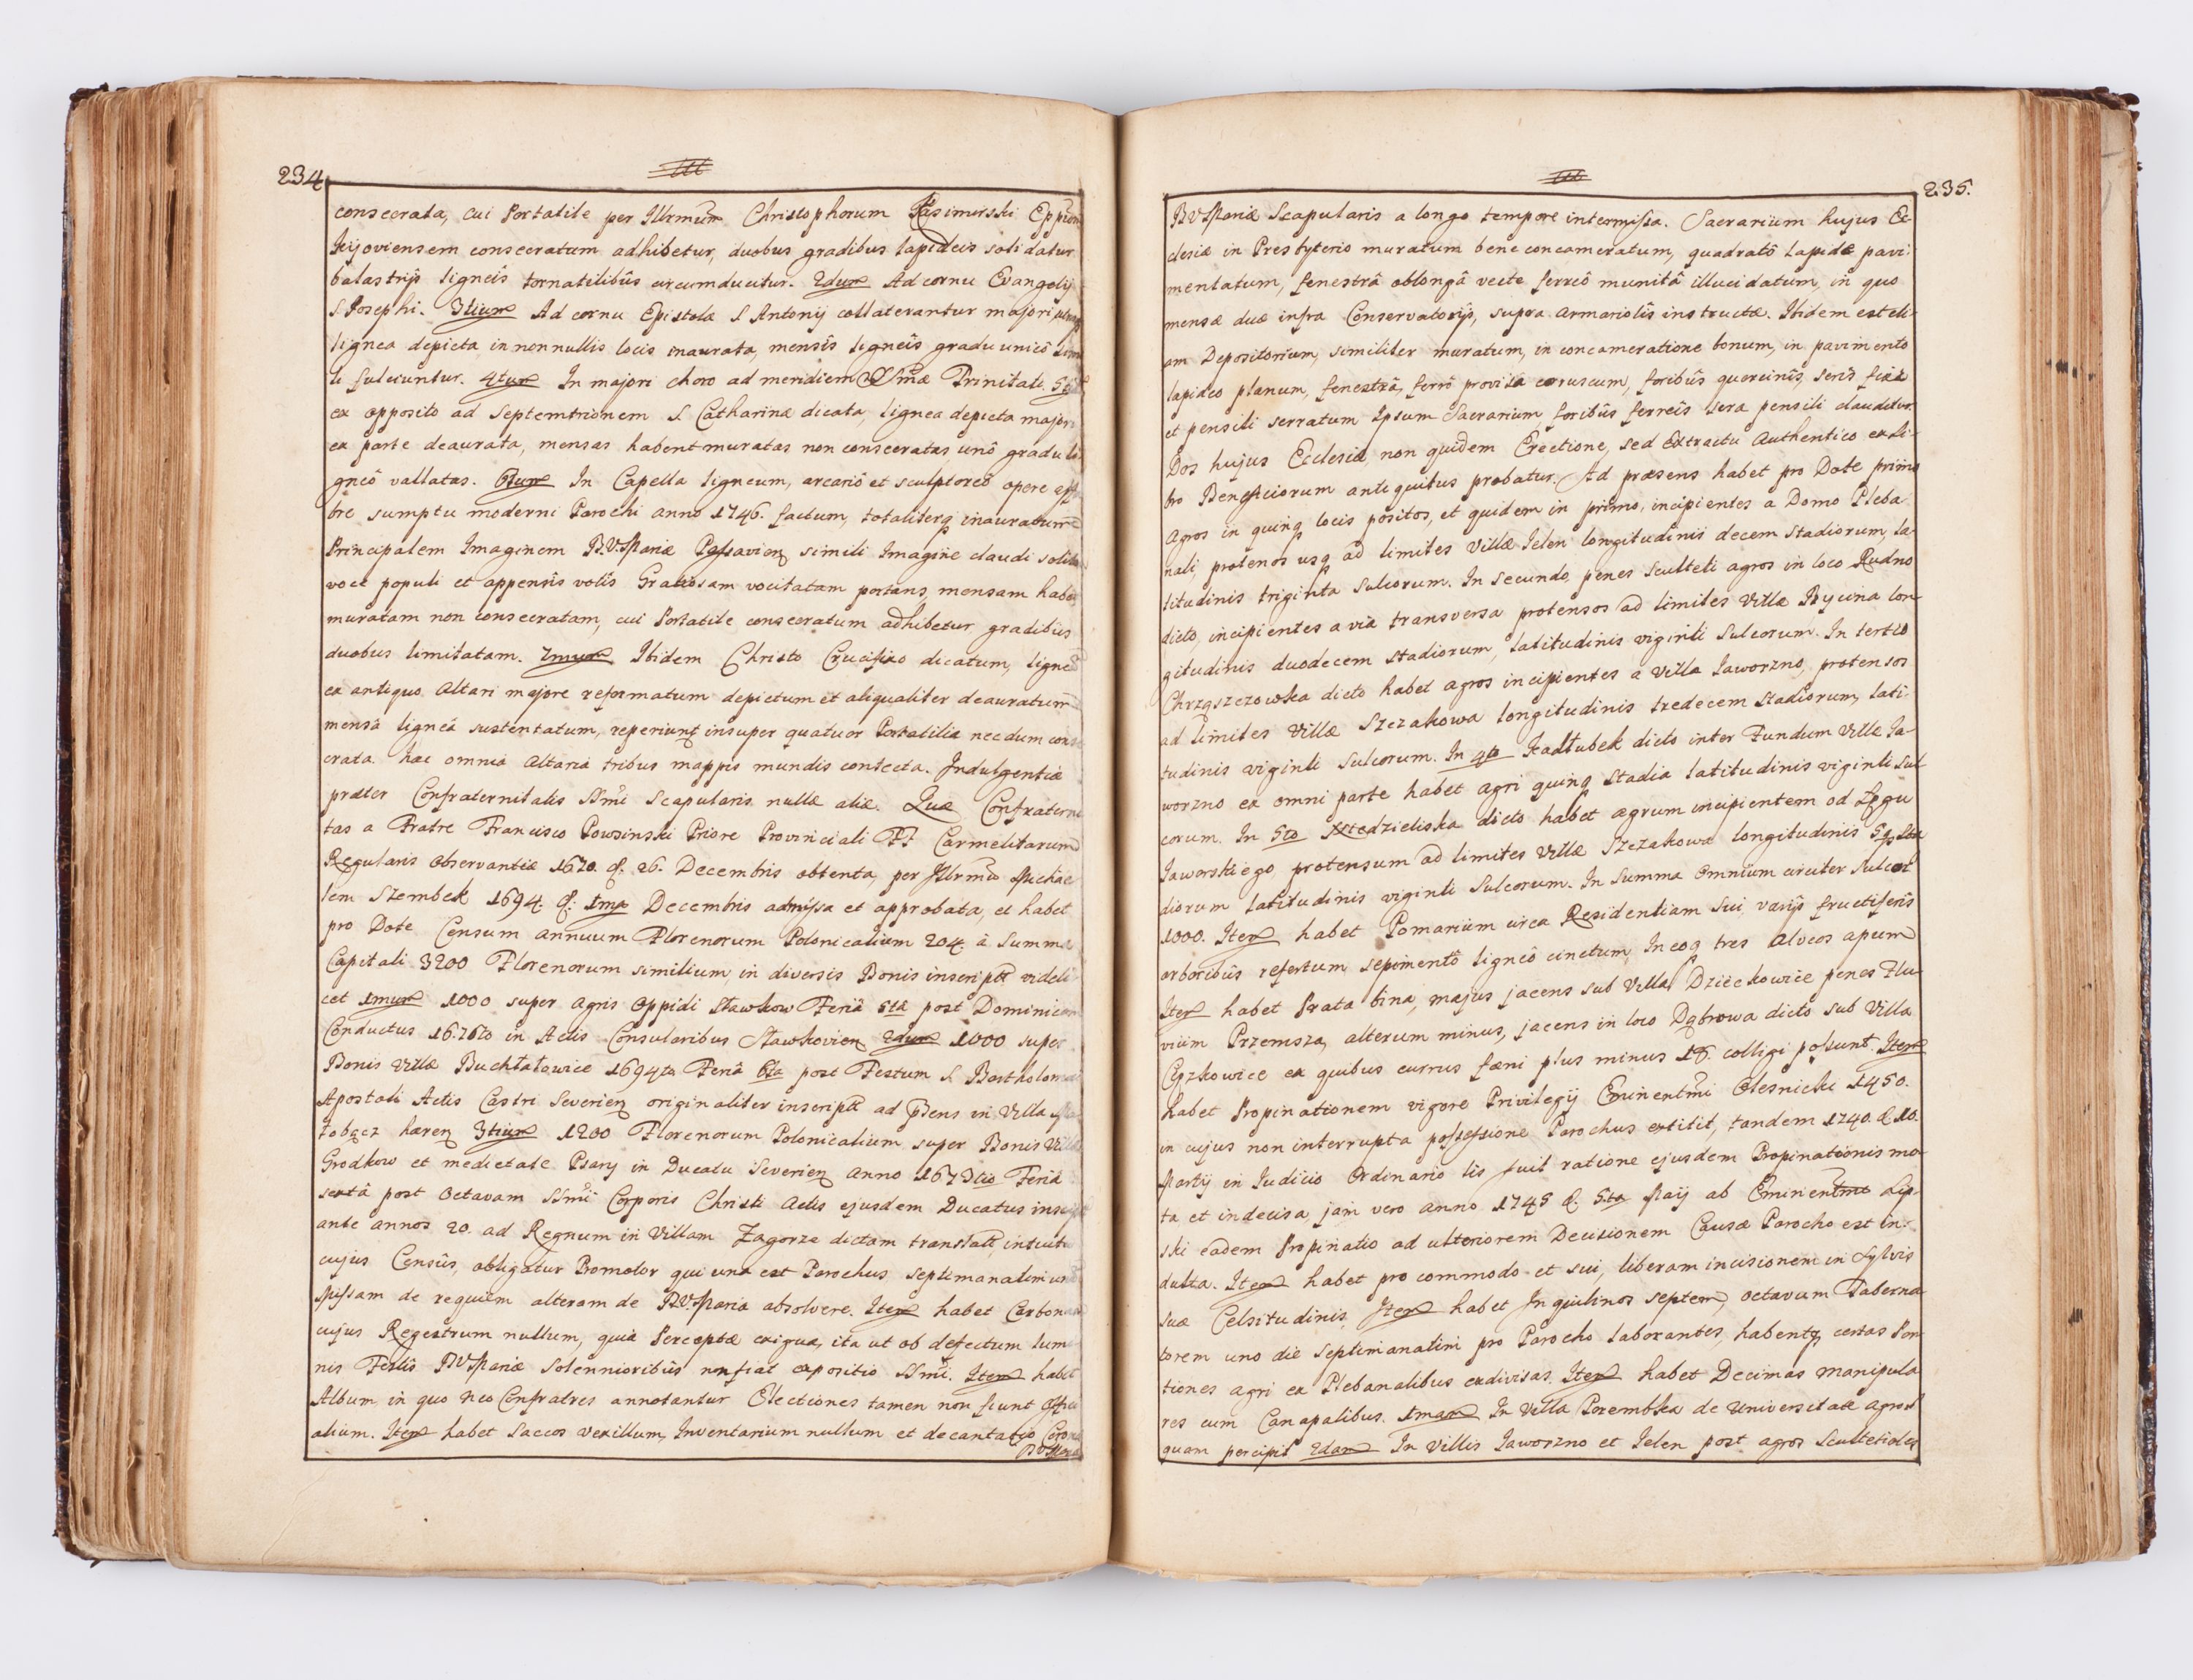 234
consecrata, cui Portatile per Illrmum Christophorum Kasimirski Eppum
Kijoviensem consecratum adhibetur, duobus gradibus lapideis solidatur
balastrijs ligneis tornatilibûs circumducitur. 2dum Ad cornu Evangelij
S. Josephi. 3tium Ad cornu Epistolæ S Antonij collaterantur majori
lignea depicta in nonnullis locis inaurata, mensîs ligneîs gradu unicô
li fulciuntur. 4tum In majori choro ad meridiem SSmæ Trinitati.
ex opposito ad Septemtrionem S. Catharinæ dicata, lignea depicta majori
ex parte deaurata, mensas habent muratas non consecratas unô gradu li
gneô vallatas. 6tum In Capella ligneum, arcariô et sculptoreô opere
bre sumptu moderni Parochi anno 1746. factum, totaliterq inauratum
Principalem Imaginem B.V.Mariæ Passavien simili Imagine claudi solitam
voce populi et appensîs votîs Gratiosam vocitatam portans, mensam habet
muratam non consecratam, cui Portatile consecratum adhibetur gradibûs
duobus limitatam. 7mum Ibidem Christo Crucifixo dicatum, ligneô
ex antiquo Altari majore reformatum depictum et aliqualiter deauratum
mensâ ligneâ sustentatum, reperiunt insuper quatuor Portatilia necdum conse
crata. hæc omnia Altaria tribus mappis mundis contecta. Indulgentiæ
præter Confraternitatis SSmi Scapularis nullæ aliæ. Quæ Confraterni
tas a Fratre Francisco Powsinski Priore Provinciali FF Carmelitarum
Regularis Observantiæ 1670. d. 26. Decembris obtenta, per Illrmum Michae
lem Szembek 1694. d: 1ma Decembris admissa et approbata, et habet
pro Dote Censum annuum Florenorum Polonicalium 204. à Summa
Capitali 3200 Florenorum similium, in diversis Bonis inscript videli
cet 1mum 1000 super Agris Oppidi Sławkow Feriâ 5tâ post Dominicam
Conductus 1676to in Actis Consularibus Sławkovien 2dum 1000 super
Bonis Villæ Buchtałowice 1694to Feriâ 6ta post Festum S. Bartholomæi
Apostoli Actis Castri Severien originaliter inscript ad pñens in Villa
łobądz hæren 3tium 1200 Florenorum Polonicalium super Bonis Villæ
Grodkow et medietate Psary in Ducatu Severien anno 1673tio Feriâ
sextâ post Octavam SSmi Corporis Christi Actis ejusdem Ducatus inscript
ante annos 20. ad Regnum in Villam Zagorze dictam translatt, intuitu
cujus Censûs, obligatur Promotor qui una est Parochus septimanatim unâ
Missam de requiem alteram de B.V.Maria absolvere. Item habet Carbonam
cujus Regestrum nullum, quia Perceptæ exiguæ, ita ut ob defectum lumi
nis Festîs B.V.Mariæ Solennioribûs non fiat expositio SSmi. Item habet
Album in quo Neo Confratres annotantur Electiones tamen non fiunt Offici
alium. Item habet Saccos Vexillum, Inventarium nullum et decantatio Coronæ
B.V.Mariæ

235.
B.V.Mariæ Scapularis a longo tempore intermissa. Sacrarium hujus Ec-
clesiæ in Presbyterio muratum bene concameratum, quadratô Lapide pavi-
mentatum, fenestrâ oblongâ vecte ferreô munitâ illucidatum, in quo
mensæ duæ infra Conservatorijs, supra Armariolîs instructæ. Ibidem est eti-
am Depositorium, similiter muratum, in concameratione bonum, in pavimento
lapideo planum, fenestrâ, ferrô provisâ coruscum, foribûs quercinîs, serîs fixâ
et pensili serratum Ipsum Sacrarium, foribûs ferreîs sera pensili clauditur.
Dos hujus Ecclesiæ, non quidem Erectione, sed Extractu Authentico ex Li-
bro Beneficiorum antiquibus probatur. Ad præsens habet pro Dote primo
Agros in quinq locis positos, et quidem in primo, incipientes a Domo Pleba-
nali, protenos usq ad limites Villæ Jelen longitudinis decem stadiorum, la-
titudinis triginta Sulcorum. In secundo, penes Sculteti agros in loco Rudno
dicto, incipientes a via transversa protensos ad limites Villæ Byczna lon-
gitudinis duodecem stadiorum, latitudinis viginti Sulcorum. In tertio
Chrząszczowka dicto habet agros incipientes a Villa Jaworzno, protensos
ad limites Villæ Szczakowa longitudinis tredecem stadiorum, lati-
tudinis viginti Sulcorum. In 4to Kadłubek dicto inter Fundum Villæ Ja-
worzno ex omni parte habet agri quinq Stadia latitudinis viginti Sul
corum. In 5to Niedzieliska dicto habet agrum incipientem od Ługu
Jaworskiego, protensum ad limites Villæ Szczakowa longitudinis 5q Sta
diorum latitudinis viginti Sulcorum. In Summa Omnium circiter Sulcos
1000. Item habet Pomarium circa Residentiam Sui, varijs fructiferîs
arboribûs refertum, sepimentô ligneô cinctum, In eoq tres Alveos apum
Item habet Prata bina, majus jacens sub Villa Dziećkowice penes Flu-
vium Przemsza, alterum minus, jacens in loco Dąbrowa dicto sub Villa
Cęzkowice ex quibus currus fæni plus minus 16. colligi possunt. Item
habet Propinationem vigore Privilegij Eminentmi Olesnicki 1450.
in cujus non interrupta possessione Parochus extitit, tandem 1740. d. 10.
Martij in Judicio Ordinario lis fuit ratione ejusdem Propinationis mo-
ta et indecisa, jam vero anno 1745 d. 5ta Maij ab Eminentmo Lip-
ski eadem Propinatio ad ulteriorem Decisionem Causæ Parocho est in-
dulta. Item habet pro commodo et sui, liberam incisionem in Sylvis
Suæ Celsitudinis. Item habet Inquilinos septem, octavum Taberna
torem uno die septimanatim pro Parocho laborantes, habentq certas Por
tiones agri ex Plebanalibus exdivisas. Item habet Decimas Manipula
res cum Canapalibus. 1mam In Villa Porembka de Universitate agros
quam percipit 2dam In Villis Jaworzno et Jelen post agros Scultetiales